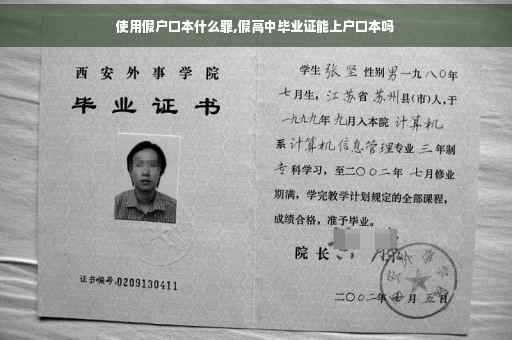 使用假户口本什么罪,假高中毕业证能上户口本吗
西安外事学院
毕业证书
证书编号:0209130411
学生 张坚 性别 男 一九八〇年
七月生, 江苏省 苏州县(市)人,于
一九九九年 九月入本院 计算机
系 计算机信息管理专业 三 年制
专科学习,至二〇〇二年 七月修业
期满,学完教学计划规定的全部课程,
成绩合格,准予毕业。
院长
二〇〇二年 月五日